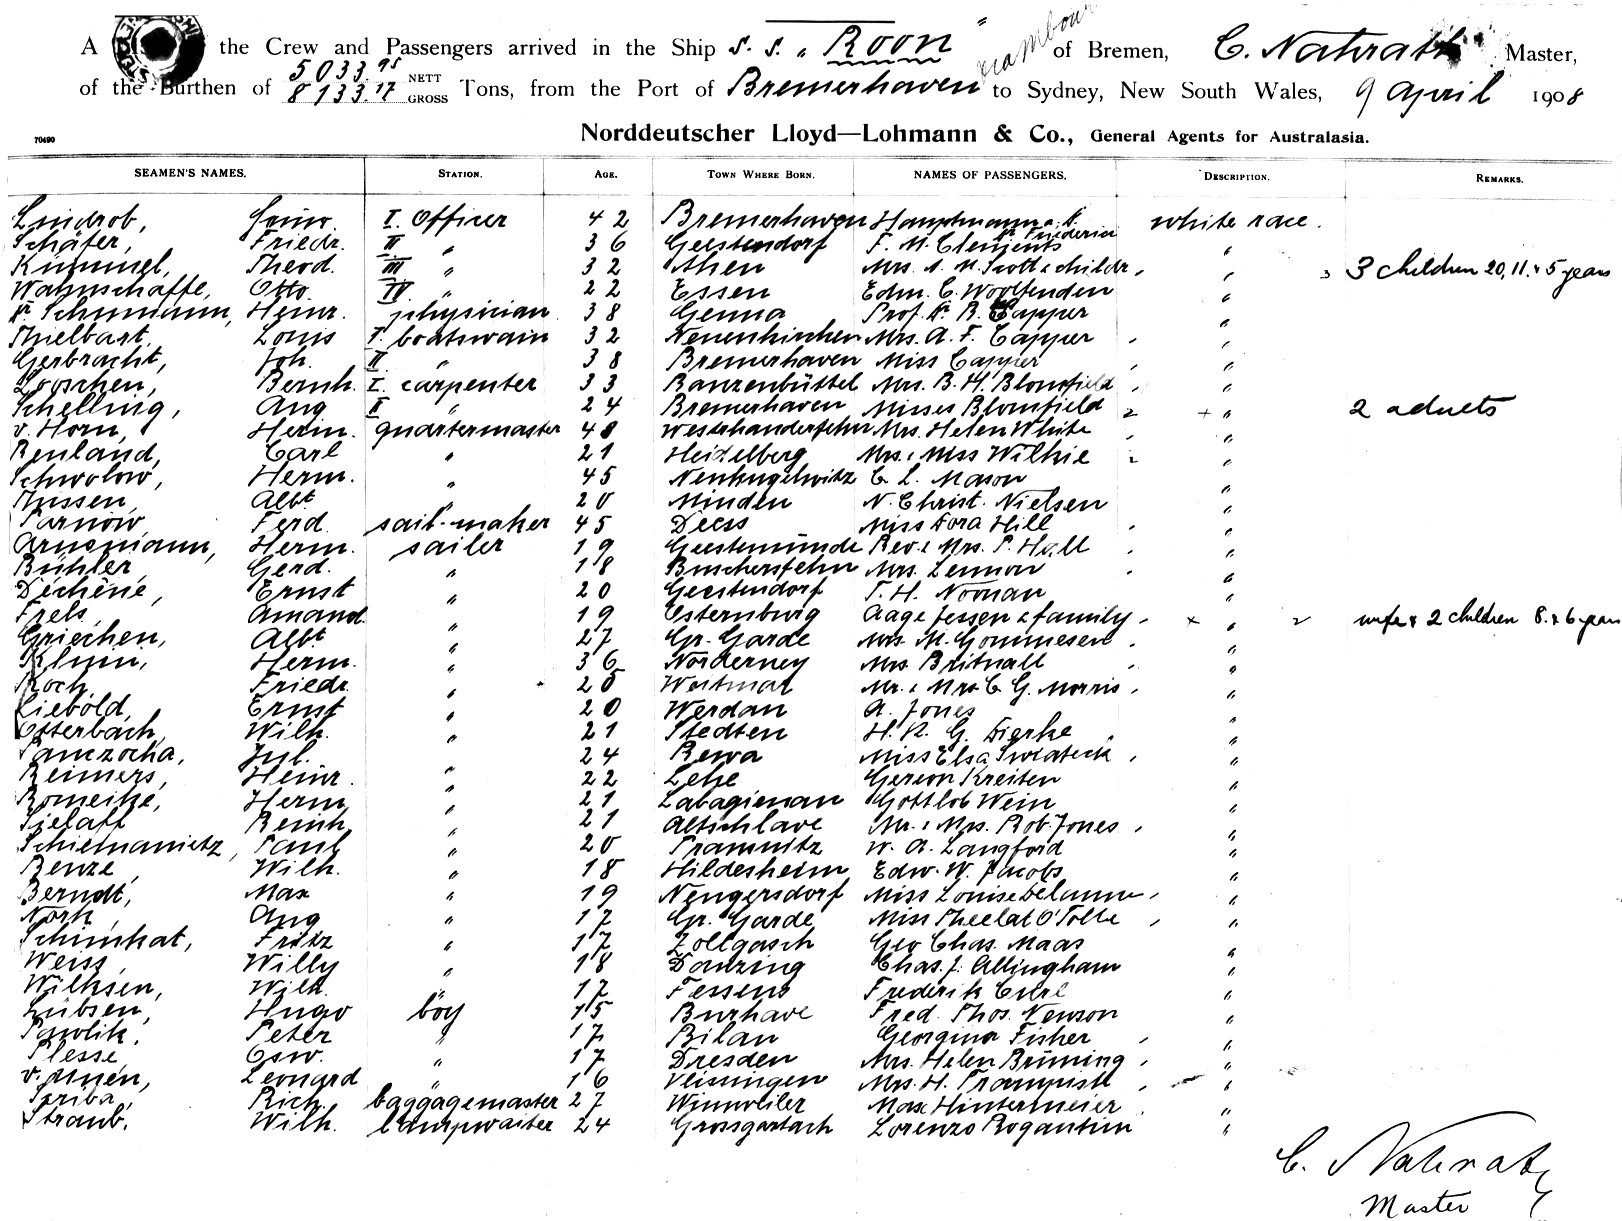 A the Crew and Passengers arrived in the Ship S. S. „ Roon " of Bremen, C. Nahrath Master,
of the Burthen of 5033.95 NETT 8133.17 GROSS Tons, from the Port of Bremerhaven to Sydney, New South Wales, 9 April 1908
Norddeutscher Lloyd—Lohmann & Co., General Agents for Australasia.
70490
SEAMEN'S NAMES. STATION. AGE. TOWN WHERE BORN. NAMES OF PASSENGERS. DESCRIPTION. REMARKS.
Lindrob, I. Officer 42 Bremerhaven Hauptmann white race.
Schäfer, Friedr. II " 36 Geestendorf F. M. Clements "
Kümmel, Theod. III " 32 Athen Mrs. M. Scott & childr. " 3 3 children 20, 11. & 5 years
Wahnschaffe, Otto. IV " 22 Essen Edm. C. Woolfenden "
Dr. Schumann, Heinr. physician 38 Genua Prof. Dr. B. Capper "
Thielbart, Louis I. boatswain 32 Neuenkirchen Mrs. A. F. Capper "
Gerbracht, Joh. II " 38 Bremerhaven Miss Capper "
Looschen, Bernh. I. carpenter 33 Banzenbüttel Mrs. B. H. Blomfield "
Schelling, Aug II " 24 Bremerhaven Misses Blomfield 2 + " 2 adults
v. Horn, Herm. quartermaster 48 Mrs. Helen White "
Benland, Carl " 21 Heidelberg Mrs. & Miss Wilkie "
Schwolow, Herm. " 45 C. L. Mason "
Nissen, Albt " 20 Minden N. Christ. Nielsen "
Parnow Ferd. sail-maker 45 Deess Miss Dora Hill "
Arnemann, Herm. sailer 19 Geestemünde Rev. & Mrs. P. Hall "
Bühler, Gerd. " 18 Mrs. Lennon "
Dechéne, Ernst " 20 Geestendorf T. H. Noonan "
Frels, Amand. " 19 Osternburg Aage Jessen & family x " 2 wife & 2 children 8. & 6 years
Griechen, Albt " 27 Gr. Garde Mrs. M. Gommesen "
Klump, Herm. " 36 Norderney Mrs. Britnall "
Koch, Friedr. " 20 Weitmar Mr. & Mrs. C. G. Morris "
Liebold, Ernst " 20 Werdau A. Jones "
Otterbach, Wilh. " 21 Stedten H. R. G. Dierke "
Panczocha, Jul. " 24 Rewa Miss Elsa "
Reimers, Heinr. " 22 Lehe Gereon Kreiten "
Romeike, Herm " 21 Labagienen Gottlob Wein "
Sielaff Reinh " 21 Altschlawe Mr. & Mrs. Rob. Jones "
Schiemanietz, Paul " 20 Pramnitz W. A. Langford "
Benze, Wilh. " 18 Hildesheim Edw. W. Jacobs "
Berndt, Max " 19 Nengersdorf Miss Louise "
Nork, Aug " 17 Gr. Garde Miss O'Toole "
Schimkat, Fritz " 17 Zollgasch Geo Chas. Maas "
Weiss, Willy " 18 Danzing Chas. J. Allingham "
Wilksen, Wilh. " 17 Fessens Frederik "
Lübsen, Hugo boy 15 Burhave Fred. Thos. Newson "
Pawlik, Peter " 17 Bilan Georgina Fisher "
Plesse Osw. " 17 Dresden Mrs. Helen Brüning "
v. Leonard " 16 Mrs. H. "
Scriba, Rich. baggagemaster 27 Winnweiler Max Hintermeier "
Straub. Wilh. lampwaiter 24 Grossgartach Lorenzo Rogantini "
C. Nahrath
Master